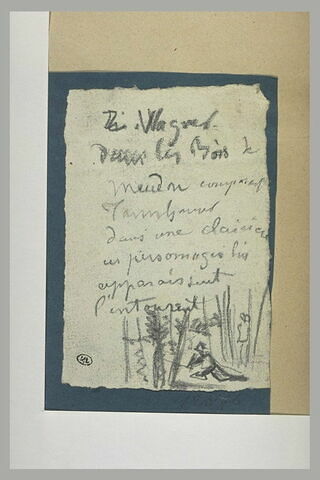 R. Wagner
dans les Bois de
Meudon composant
Tannhauser
dans une clairière
ses personnages lui
apparaissent
l'entourent